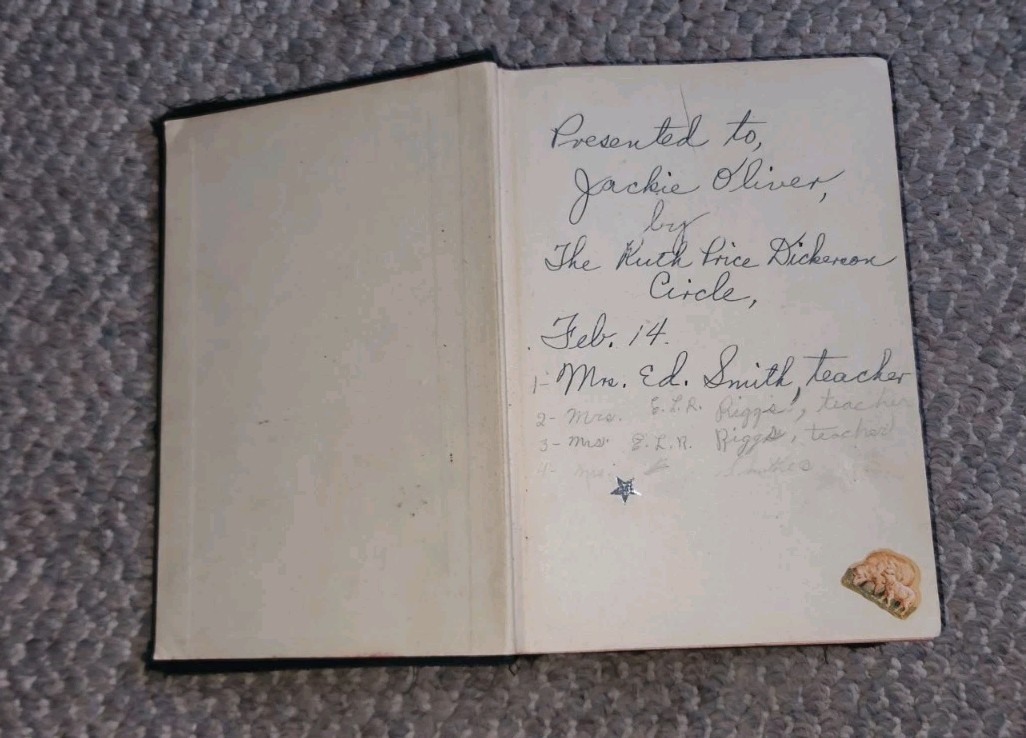 Presented to,
Jackie Oliver,
by
The Ruth Price Dickerson
Circle,
Feb. 14.
1- Mrs. Ed. Smith, teacher
2- Mrs. E.L.R. Riggs, teacher
3- Mrs. E.L.R. Riggs, teacher
4- Mrs.